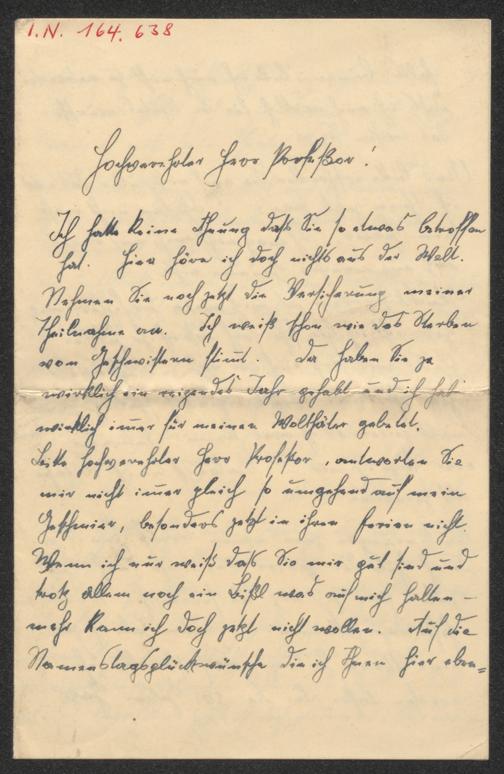 I.N. 164.638
Hochverehrter Herr Professor!
Ich hatte keine Ahnung daß Sie so etwas betroffen
hat. Hier höre ich doch nichts aus der Welt.
Nehmen Sie noch jetzt die Versicherung meiner
Theilnahme an. Ich weiß schon wie das Sterben
von Geschwistern stimt. Da haben Sie ja
wirklich ein Jahr gehabt und ich hab
wirklich imer für meinen Wolthäter gebetet.
Bitte hochverehrter Herr Professor, antworten Sie
mir nicht imer gleich so umgehend auf mein
Geschmier, besonders jetzt in ihren Ferien nicht.
Wenn ich nur weiß daß Sie mir gut sind und
trotz allem noch ein Bißl was auf mich halten –
mehr kann ich doch jetzt nicht wollen. Auf die
Namenstagsglückwünsche die ich Ihnen hier eben=